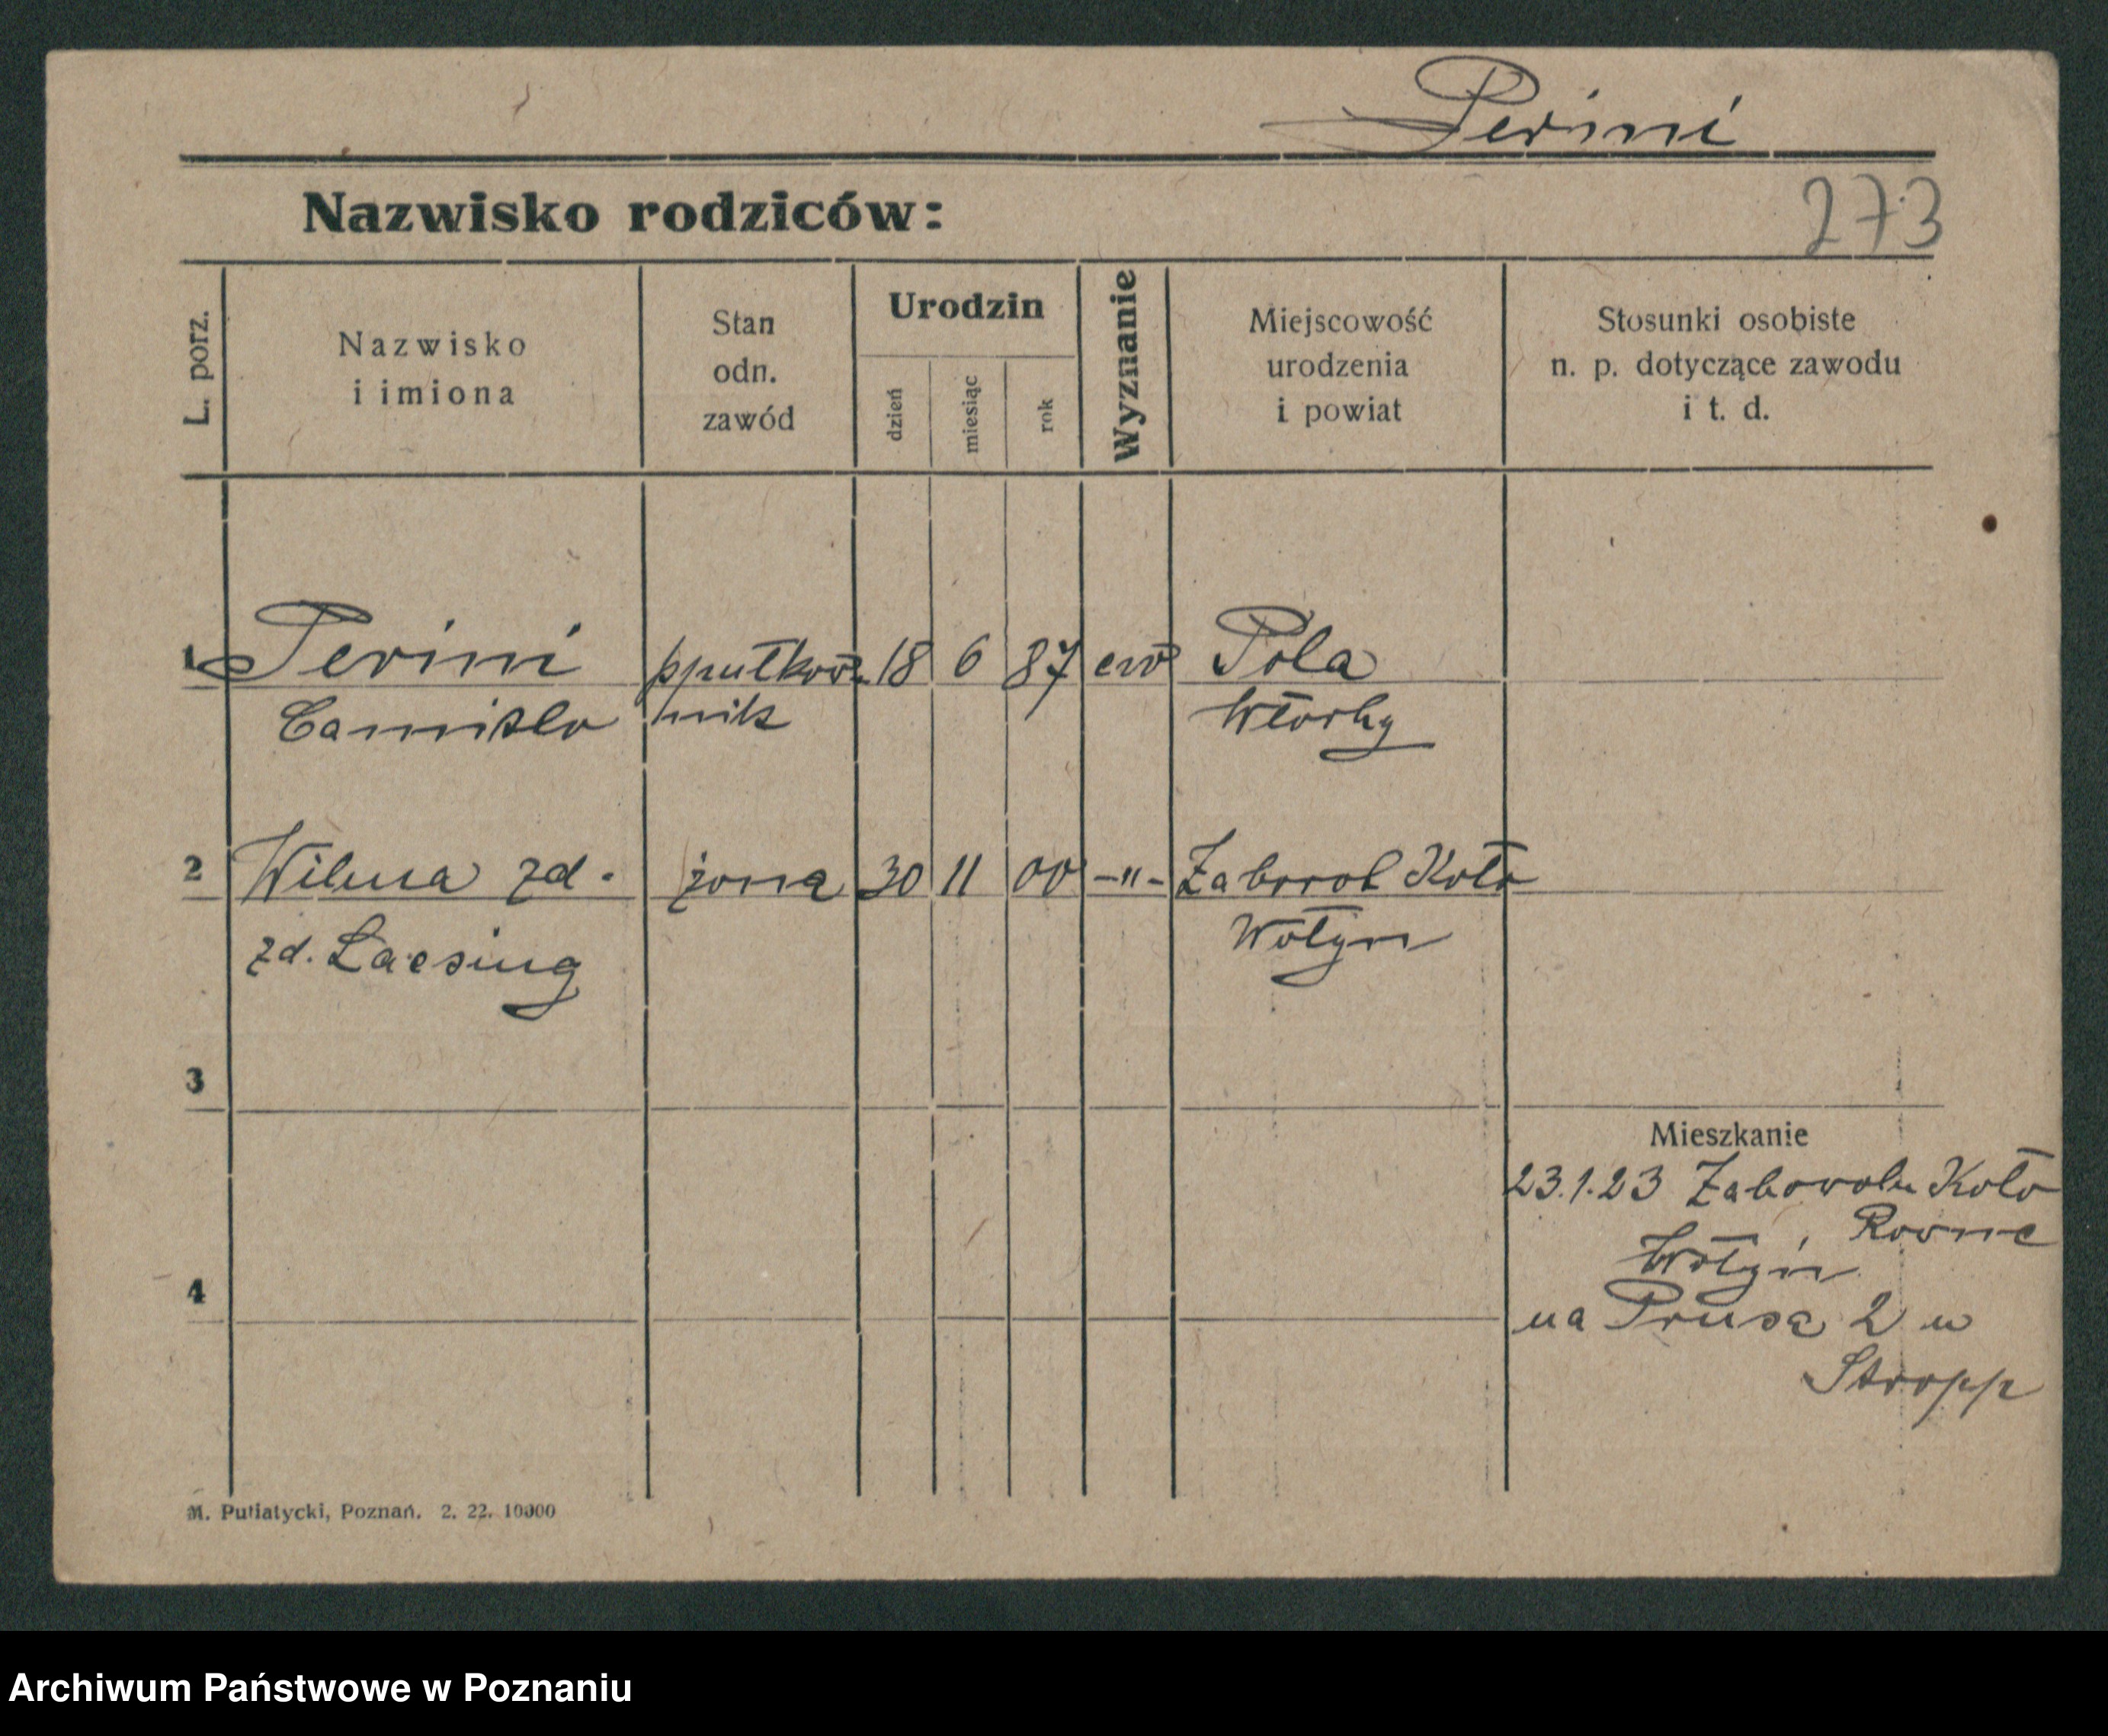 Perini
Nazwisko rodziców:
273
L. porz.
Nazwisko
i imiona
Stan
odn.
zawód
Urodzin
dzień
miesiąc
rok
Wyznanie
Miejscowość
urodzenia
i powiat
Stosunki osobiste
n. p. dotyczące zawodu
i t. d.
1 Perini ppułkow 18 6 87 ew Pola
Camillo nik Włochy
2 Wilma zd. żona 30 11 00 -"- Zaborol Koło
zd. Laesing Wołyn
3
Mieszkanie
23.1.23 Zaborolu Koło
Rowne
Wołyń
4
na Prusa 2 u
Stropp
M. Putiatycki, Poznań. 2. 22. 10000
Archiwum Państwowe w Poznaniu